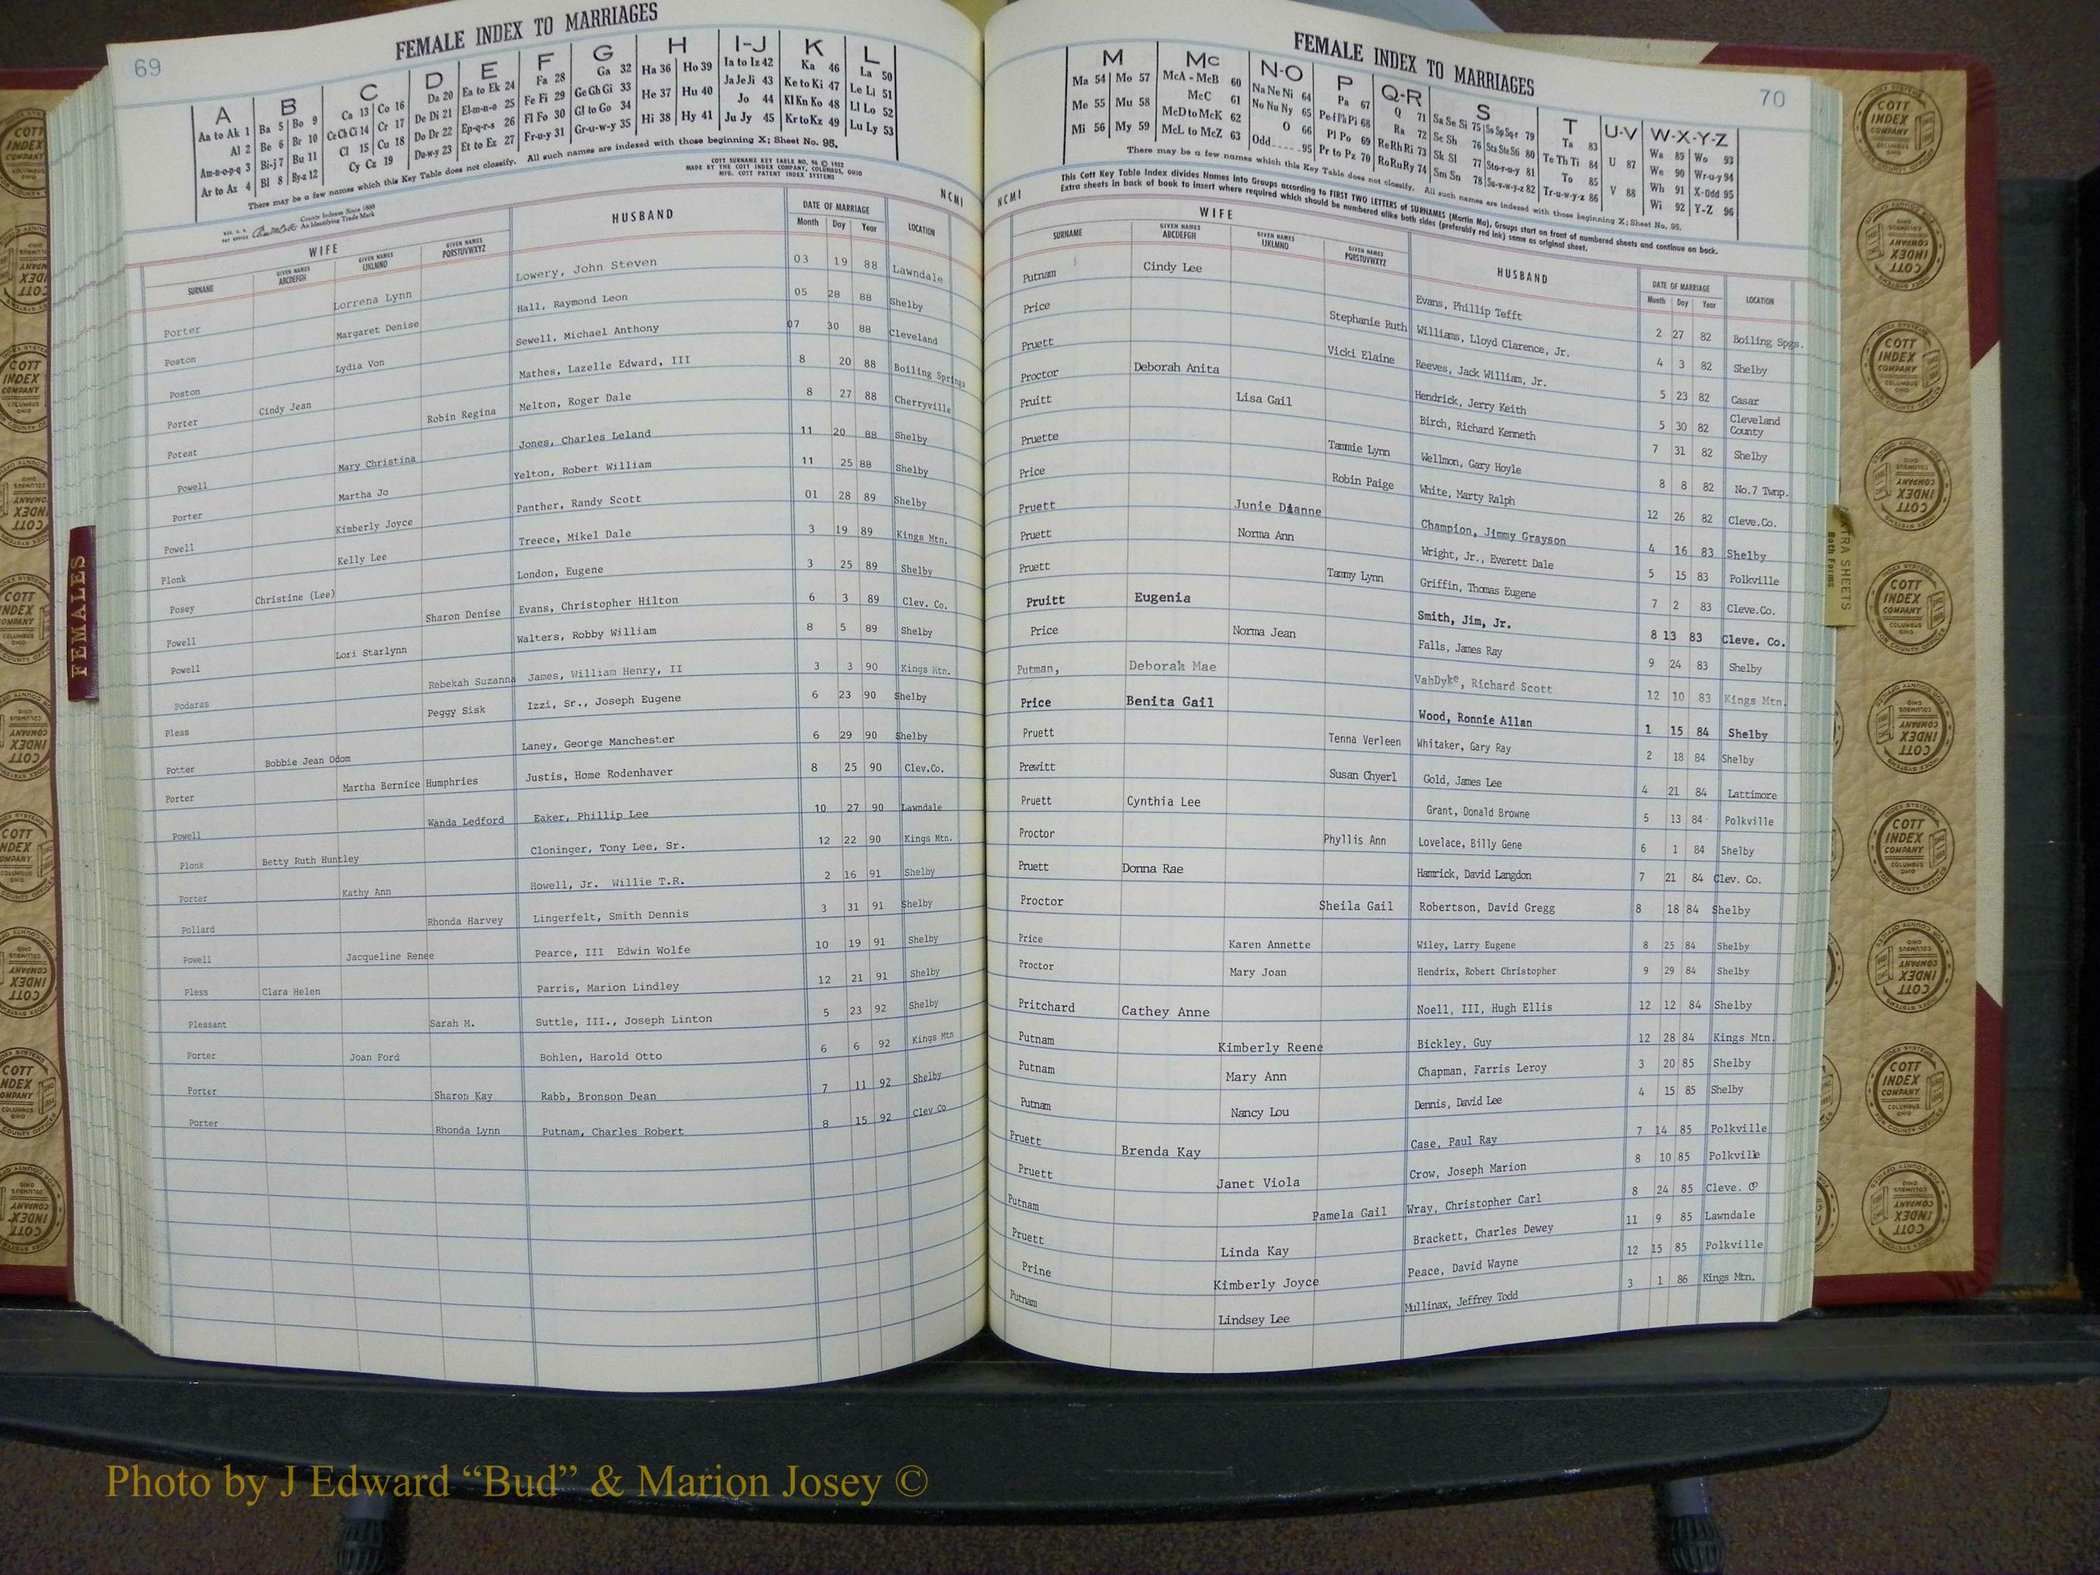 69
FEMALE INDEX TO MARRIAGES
A B C D E F G H I-J K L
Aa to Ak 1 Ba 5 Bo 9 Ca 13 Co 16 Da 20 Ea to Ek 24 Fa 28 Ga 32 Ha 36 Ho 39 Ia to Iz 42 Ka 46 La 50
Al 2 Be 6 Br 10 Ce Ch Ci 14 Cr 17 De Di 21 El-m-n-o 25 Fe Fi 29 Ge Gh Gi 33 He 37 Hu 40 Ja Je Ji 43 Ke to Ki 47 Le Li 51
Am-n-o-p-q 3 Bi-j 7 Bu 11 Cl 15 Cu 18 Do Dr 22 Ep-q-r-s 26 Fl Fo 30 Gl to Go 34 Hi 38 Hy 41 Jo 44 Kl Kn Ko 48 Ll Lo 52
Ar to Az 4 Bl 8 By-z 12 Cy Cz 19 Du-w-y 23 Et to Ez 27 Fr-u-y 31 Gr-u-w-y 35 Ju Jy 45 Kr to Kz 49 Lu Ly 53
There may be a few names which this Key Table does not classify. All such names are indexed with those beginning X; Sheet No. 95.
COTT SURNAME KEY TABLE NO. 96 © 1952
MADE BY THE COTT INDEX COMPANY, COLUMBUS, OHIO
MFG. COTT PATENT INDEX SYSTEMS
NCMI
County Indexes Since 1888
An Identifying Trade Mark
WIFE HUSBAND DATE OF MARRIAGE LOCATION
SURNAME GIVEN NAMES ABCDEFGH GIVEN NAMES IJKLMNO GIVEN NAMES PQRSTUVWXYZ Month Day Year
Porter Lorrena Lynn Lowery, John Steven 03 19 88 Lawndale
Poston Margaret Denise Hall, Raymond Leon 05 28 88 Shelby
Poston Lydia Von Sewell, Michael Anthony 07 30 88 Cleveland
Porter Cindy Jean Mathes, Lazelle Edward, III 8 20 88 Boiling Springs
Poteat Robin Regina Melton, Roger Dale 8 27 88 Cherryville
Powell Mary Christina Jones, Charles Leland 11 20 88 Shelby
Porter Martha Jo Yelton, Robert William 11 25 88 Shelby
Powell Kimberly Joyce Panther, Randy Scott 01 28 89 Shelby
Plonk Kelly Lee Treece, Mikel Dale 3 19 89 Kings Mtn.
Posey Christine (Lee) London, Eugene 3 25 89 Shelby
Powell Sharon Denise Evans, Christopher Hilton 6 3 89 Clev. Co.
Powell Lori Starlynn Walters, Robby William 8 5 89 Shelby
Podaras Rebekah Suzanna James, William Henry, II 3 3 90 Kings Mtn.
Pless Peggy Sisk Izzi, Sr., Joseph Eugene 6 23 90 Shelby
Potter Bobbie Jean Odom Laney, George Manchester 6 29 90 Shelby
Porter Martha Bernice Humphries Justis, Home Rodenhaver 8 25 90 Clev.Co.
Powell Wanda Ledford Eaker, Phillip Lee 10 27 90 Lawndale
Plonk Betty Ruth Huntley Cloninger, Tony Lee, Sr. 12 22 90 Kings Mtn.
Porter Kathy Ann Howell, Jr. Willie T.R. 2 16 91 Shelby
Pollard Rhonda Harvey Lingerfelt, Smith Dennis 3 31 91 Shelby
Powell Jacqueline Renee Pearce, III Edwin Wolfe 10 19 91 Shelby
Pless Clara Helen Parris, Marion Lindley 12 21 91 Shelby
Pleasant Sarah M. Suttle, III., Joseph Linton 5 23 92 Shelby
Porter Joan Ford Bohlen, Harold Otto 6 6 92 Kings Mtn
Porter Sharon Kay Rabb, Bronson Dean 7 11 92 Shelby
Porter Rhonda Lynn Putnam, Charles Robert 8 15 92 Clev Co
FEMALES
70
FEMALE INDEX TO MARRIAGES
M Mc N-O P Q-R S T U-V W-X-Y-Z
Ma 54 Mo 57 McA - McB 60 Na Ne Ni 64 Pa 67 Q 71 Sa Se Si 75 So Sp Sq-r 79 Ta 83 U 87 Wa 89 Wo 93
Me 55 Mu 58 McC 61 No Nu Ny 65 Pe-f Ph Pi 68 Ra 72 Sc Sh 76 Sta Ste S6 80 Te Th Ti 84 V 88 We 90 Wr-u-y 94
Mi 56 My 59 McD to McK 62 O 66 Pl Po 69 Re Rh Ri 73 Sk Sl 77 Sto-r-u-y 81 To 85 Wh 91 X-Odd 95
McL to McZ 63 Odd 95 Pr to Pz 70 Ro Ru Ry 74 Sm Sn 78 Su-v-w-y-z 82 Tr-u-w-y-z 86 Wi 92 Y-Z 96
There may be a few names which this Key Table does not classify. All such names are indexed with those beginning X; Sheet No. 95.
NCMI
This Cott Key Table Index divides Names into Groups according to FIRST TWO LETTERS of SURNAMES (Martin Ma). Groups start on front of numbered sheets and continue on back.
Extra sheets in back of book to insert where required which should be numbered alike both sides (preferably red ink) same as original sheet.
WIFE HUSBAND DATE OF MARRIAGE LOCATION
SURNAME GIVEN NAMES ABCDEFGH GIVEN NAMES IJKLMNO GIVEN NAMES PQRSTUVWXYZ Month Day Year
Putnam Cindy Lee Evans, Phillip Tefft 2 27 82 Boiling Spgs.
Price Stephanie Ruth Williams, Lloyd Clarence, Jr. 4 3 82 Shelby
Pruett Vicki Elaine Reeves, Jack William, Jr. 5 23 82 Casar
Proctor Deborah Anita Hendrick, Jerry Keith 5 30 82 Cleveland County
Pruitt Lisa Gail Birch, Richard Kenneth 7 31 82 Shelby
Pruette Tammie Lynn Wellmon, Gary Hoyle 8 8 82 No.7 Twnp.
Price Robin Paige White, Marty Ralph 12 26 82 Cleve.Co.
Pruett Junie Dianne Champion, Jimmy Grayson 4 16 83 Shelby
Pruett Norma Ann Wright, Jr., Everett Dale 5 15 83 Polkville
Pruett Tammy Lynn Griffin, Thomas Eugene 7 2 83 Cleve.Co.
Pruitt Eugenia Smith, Jim, Jr. 8 13 83 Cleve. Co.
Price Norma Jean Falls, James Ray 9 24 83 Shelby
Putman, Deborah Mae VanDyke, Richard Scott 12 10 83 Kings Mtn.
Price Benita Gail Wood, Ronnie Allan 1 15 84 Shelby
Pruett Tenna Verleen Whitaker, Gary Ray 2 18 84 Shelby
Prewitt Susan Chyerl Gold, James Lee 4 21 84 Lattimore
Pruett Cynthia Lee Grant, Donald Browne 5 13 84 Polkville
Proctor Phyllis Ann Lovelace, Billy Gene 6 1 84 Shelby
Pruett Donna Rae Hamrick, David Langdon 7 21 84 Clev. Co.
Proctor Sheila Gail Robertson, David Gregg 8 18 84 Shelby
Price Karen Annette Wiley, Larry Eugene 8 25 84 Shelby
Proctor Mary Joan Hendrix, Robert Christopher 9 29 84 Shelby
Pritchard Cathey Anne Noell, III, Hugh Ellis 12 12 84 Shelby
Putnam Kimberly Reene Bickley, Guy 12 28 84 Kings Mtn.
Putnam Mary Ann Chapman, Farris Leroy 3 20 85 Shelby
Putnam Nancy Lou Dennis, David Lee 4 15 85 Shelby
Pruett Brenda Kay Case, Paul Ray 7 14 85 Polkville
Pruett Janet Viola Crow, Joseph Marion 8 10 85 Polkville
Putnam Pamela Gail Wray, Christopher Carl 8 24 85 Cleve. Co
Pruett Linda Kay Brackett, Charles Dewey 11 9 85 Lawndale
Prine Kimberly Joyce Peace, David Wayne 12 15 85 Polkville
Putnam Lindsey Lee Mullinax, Jeffrey Todd 3 1 86 Kings Mtn.
EXTRA SHEETS
Both Forms
COTT INDEX COMPANY COLUMBUS OHIO
Photo by J Edward “Bud” & Marion Josey ©